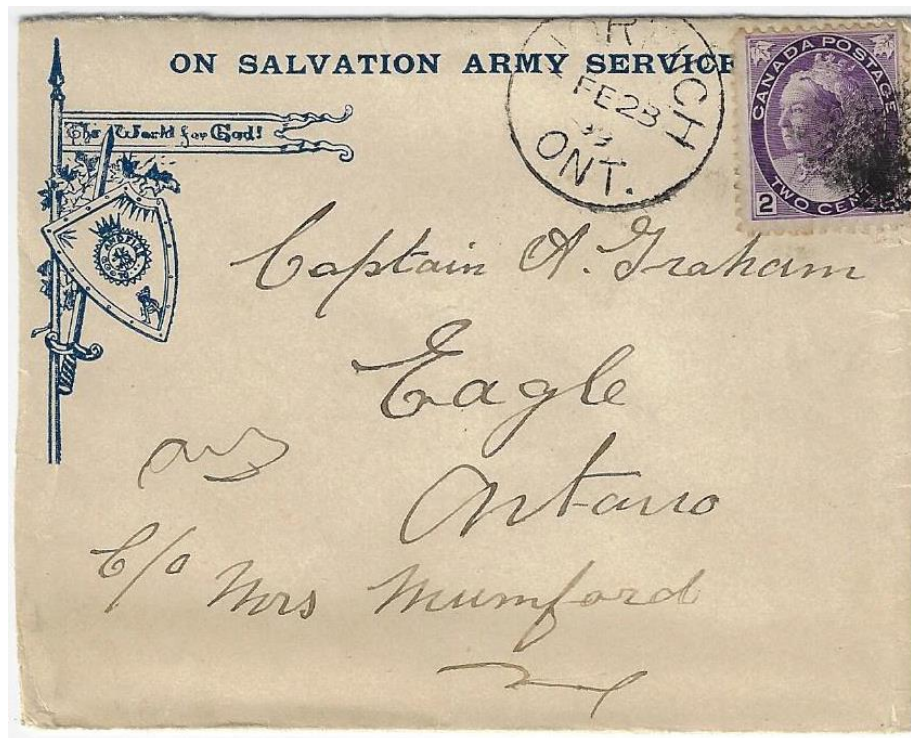 ON SALVATION ARMY SERVICE
The World for God!
FE 23
99
ONT.
CANADA POSTAGE
2 TWO CENTS
Captain A. Graham
Eagle
Ontario
C/o Mrs Mumford